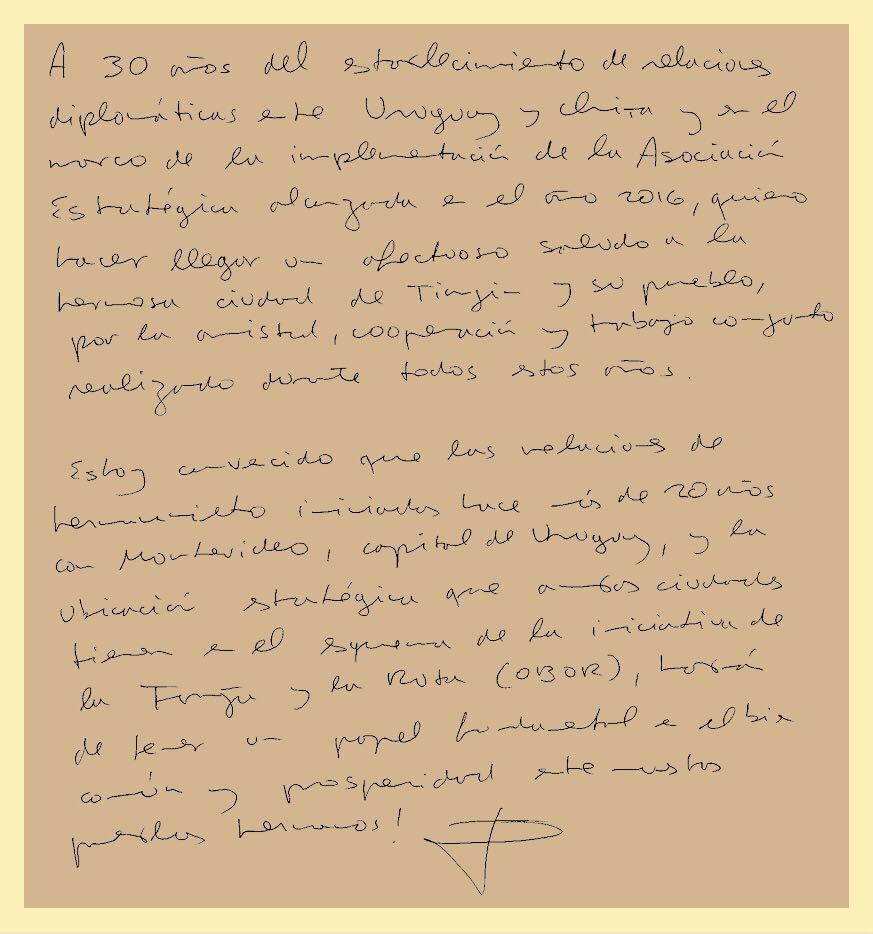 A 30 años del establecimiento de relaciones
diplomáticas entre Uruguay y China y en el
marco de la implementación de la Asociación
Estratégica alcanzada en el año 2016, quiero
hacer llegar un afectuoso saludo a la
hermosa ciudad de Tianjin y su pueblo,
por la amistad, cooperación y trabajo conjunto
realizado durante todos estos años.
Estoy convencido que las relaciones de
hermanamiento iniciadas hace más de 20 años
con Montevideo, capital de Uruguay, y la
ubicación estratégica que ambas ciudades
tienen en el esquema de la iniciativa de
la Franja y la Ruta (OBOR), habrá
de tener un papel fundamental en el bien
común y prosperidad entre nuestros
pueblos hermanos!